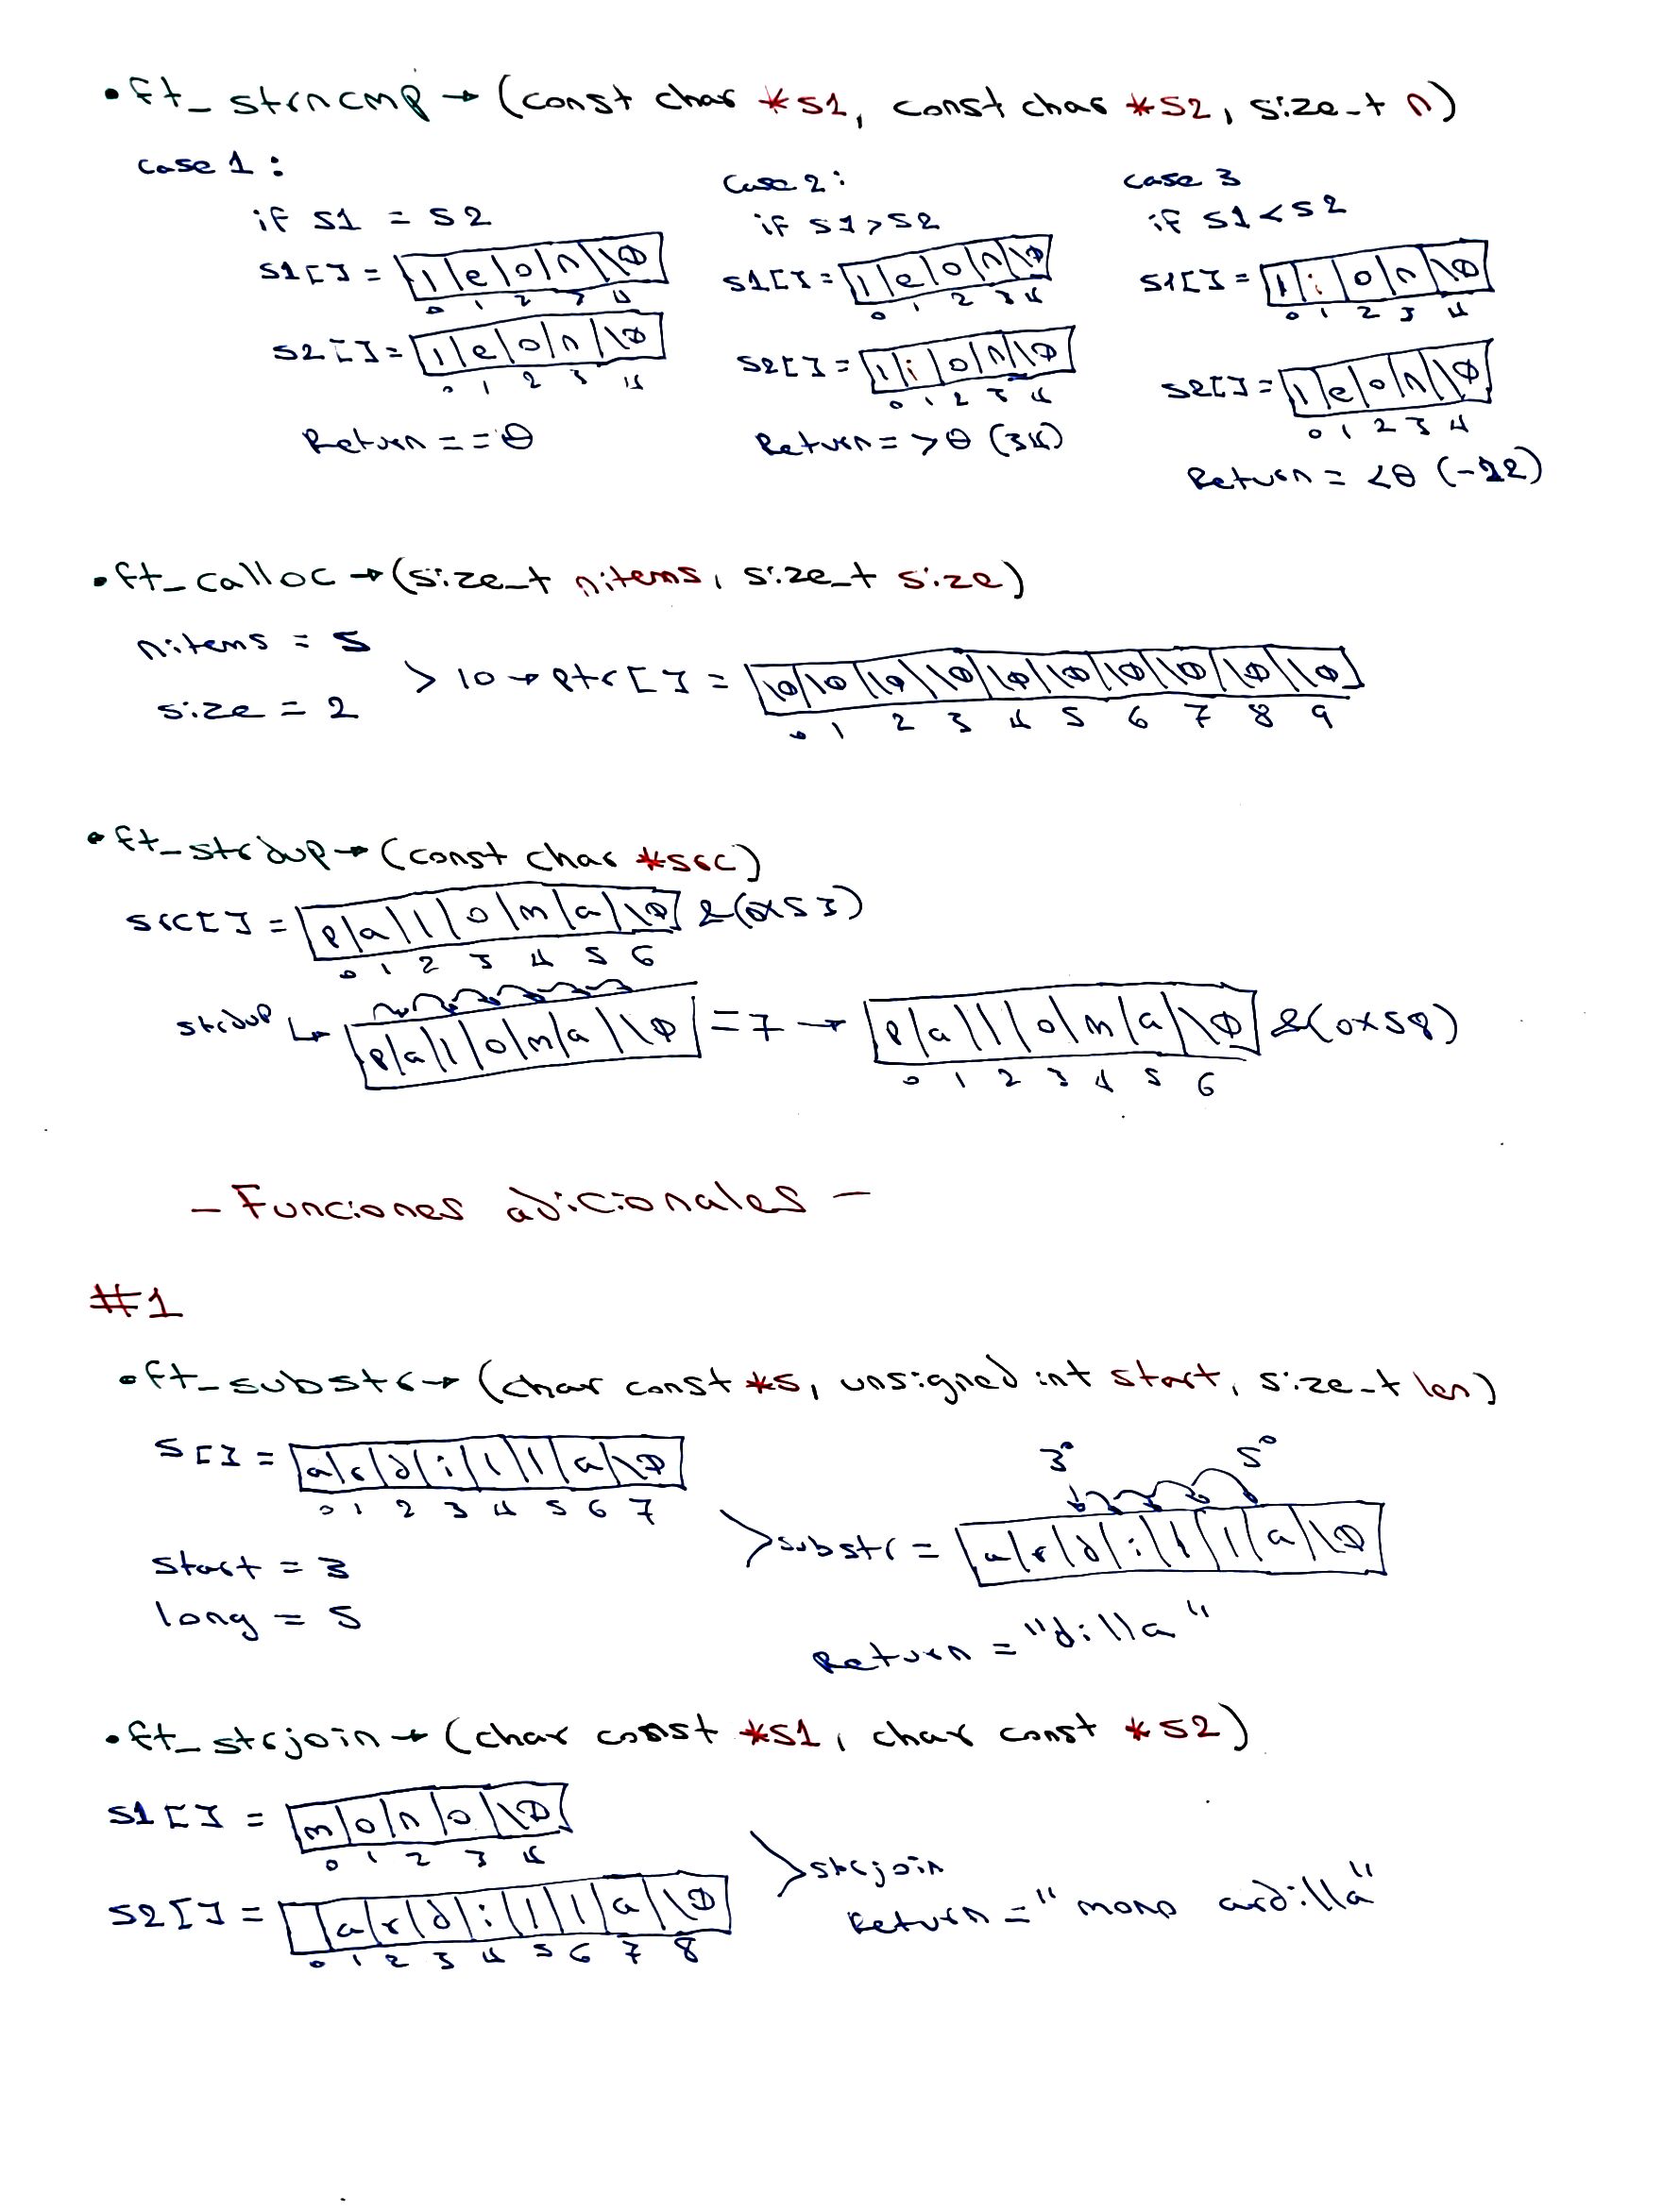 • ft_strncmp → (const char *s1, const char *s2, size_t n)
case 1:
if s1 = s2
s1[] = l|e|o|n|\0
0 1 2 3 4
s2[] = l|e|o|n|\0
0 1 2 3 4
Return == 0
Case 2:
if s1 > s2
s1[] = l|e|o|n|\0
0 1 2 3 4
s2[] = l|i|o|n|\0
0 1 2 3 4
Return = >0 (34)
case 3
if s1 < s2
s1[] = l|i|o|n|\0
0 1 2 3 4
s2[] = l|e|o|n|\0
0 1 2 3 4
Return = <0 (-12)
• ft_calloc → (size_t nitems, size_t size)
nitems = 5
size = 2
> 10 → ptr[] = \0|\0|\0|\0|\0|\0|\0|\0|\0|\0
0 1 2 3 4 5 6 7 8 9
• ft_strdup → (const char *src)
src[] = p|a|l|o|m|a|\0 &(0x53)
0 1 2 3 4 5 6
strdup ↳ p|a|l|o|m|a|\0 = 7 → p|a|l|o|m|a|\0 &(0x58)
0 1 2 3 4 5 6
- Funciones adicionales -
#1
• ft_substr → (char const *s, unsigned int start, size_t len)
s[] = a|r|d|i|l|l|a|\0
0 1 2 3 4 5 6 7
start = 3
long = 5
3° 5°
> substr = a|r|d|i|l|l|a|\0
Return = "dilla"
• ft_strjoin → (char const *s1, char const *s2)
s1[] = m|o|n|o|\0
0 1 2 3 4
s2[] = |a|r|d|i|l|l|a|\0
0 1 2 3 4 5 6 7 8
> strjoin
Return = "mono ardilla"